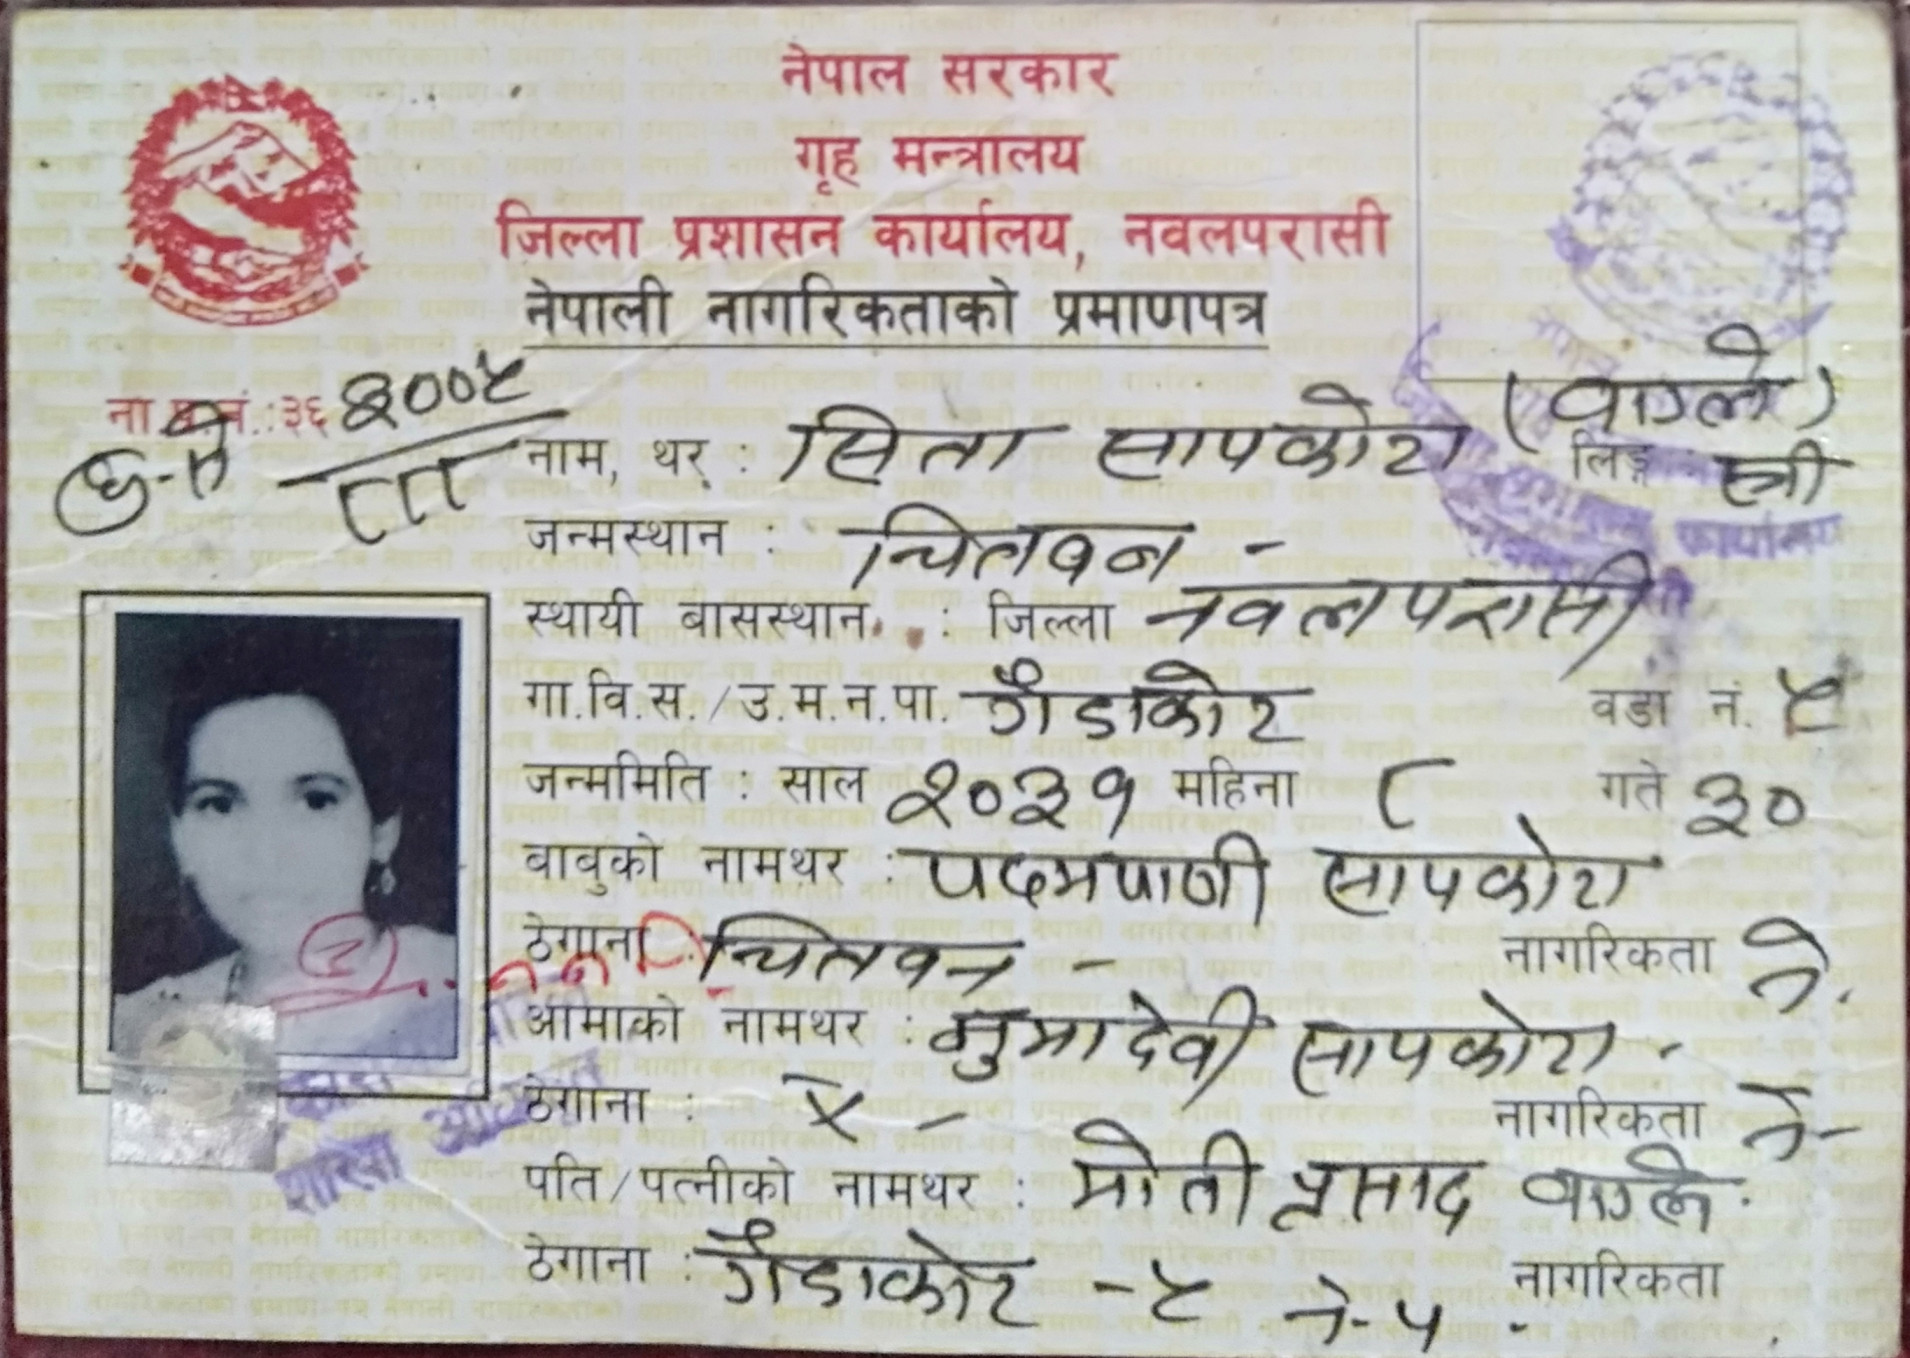 नेपाल सरकार
गृह मन्त्रालय
जिल्ला प्रशासन कार्यालय, नवलपरासी
नेपाली नागरिकताको प्रमाणपत्र
ना.प्र.नं.:३६ ३००५
नाम, थर : सिता सापकोटा (वाग्ले)
लिङ्ग स्त्री
जन्मस्थान : चितवन -
स्थायी बासस्थान : जिल्ला नवलपरासी
गा.वि.स./उ.म.न.पा. गैंडाकोट वडा नं. ५
जन्ममिति : साल २०३१ महिना ८ गते ३०
बाबुको नामथर : पदमपाणी सापकोटा
ठेगाना : चितवन - नागरिकता ने.
आमाको नामथर : नुमादेवी सापकोटा -
ठेगाना : ऐ - नागरिकता ने-
पति/पत्नीको नामथर : मोती प्रसाद वाग्ले.
ठेगाना : गैंडाकोट -५ ने-५. नागरिकता
शाखा अधिकृत